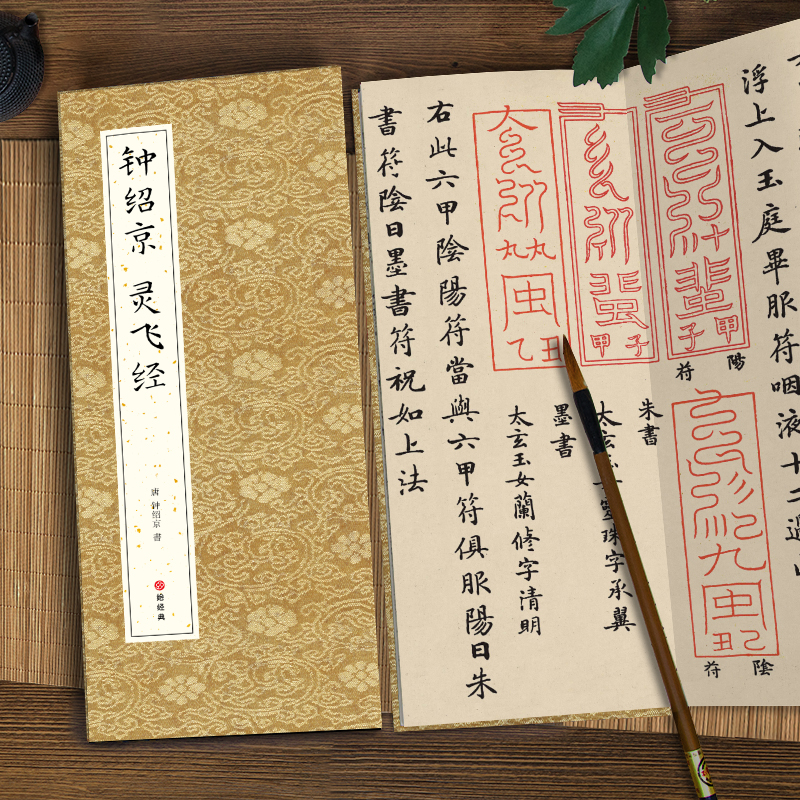 钟绍京 灵飞经
唐 钟绍京 書
绘经典
浮上入玉庭畢服符咽液十二過
陽符
甲子
陰符
九
虫
乙丑
朱書
甲子
太玄
珠字承翼
墨書
太玄玉女蘭修字清明
丸丸
虫
乙丑
右此六甲陰陽符當與六甲符俱服陽日朱
書符陰日墨書符祝如上法